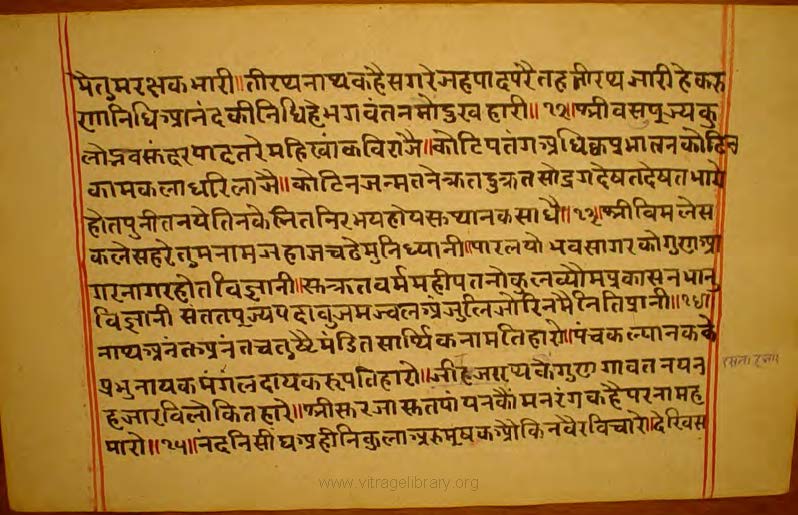 पेतुमरक्षकभारी॥तीरथनाथकहैसगरेजहपादपरैतहतीरथजारीहेकरु
णानिधिआनंदकीनिधिहेभगवंतनमोदुखहारी॥१२॥श्रीवसपूज्यकु
लोद्भवसुंदरपादतरेमहिखांकविराजै॥कोटिपतंगअधिकप्रभातनकोटिन
कामकलाधरिलाजै॥कोटिनजन्मतनेक्रतदुक्रतसोद्रगदेषतदेषतभागे
होतपुनीतनयेतिनकेनितनिरभयहोयसुथानकसाधै॥१३॥श्रीविमलेस
कलेसहरेतुमनामजहाजचढेमुनिध्यानी॥पारलयोभवसागरकोगुणआ
गरनागरहोतविज्ञानी॥सुक्रतवर्ममहीपतनोकुलव्यौमप्रकासनभानु
विज्ञानी संततपूज्यपदांबुजमज्वलअंजुलिजोरिनमैनितिप्रानी॥१४॥
नाथअनंतअनंतचतुष्टैमंडितसार्थिकनामतिहारो॥पंचकल्यानकके
प्रभुनायकमंगलदायकरूपतिहारो॥जीहजायथकैगुणगावतनयन
हजारविलोकितहारे॥श्रीसुरजासुतपांयनकौंमनरंगकहैपरनामह
मारो॥१५॥नंदनिसीघअहीनिकुलाअरुमूषकऔकिनवैरविचारो॥देखिस
www.vitragelibrary.org